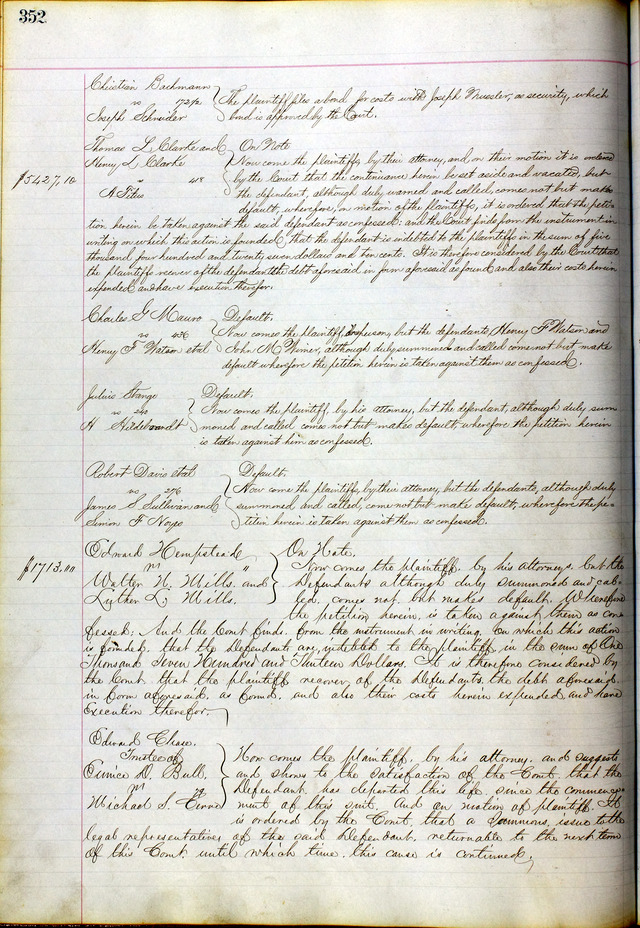 352
Christian Bachmann
vs 1727½
Joseph Schnider
The plaintiff files a bond for costs with Joseph Mussler, as security, which
bond is approved by the Court.
Thomas L Clarke and
Henry L Clarke
vs 418
A Titus
$5427.10
On Note
Now come the plaintiffs, by their attorney, and on their motion it is ordered
by the Court that the continuance herein be set aside and vacated, but
the defendant, although duly warned and called, comes not but makes
default, wherefore, on motion of the plaintiffs, it is ordered that the peti-
tion herein be taken against the said defendant as confessed; and the Court finds from the instrument in
writing on which this action is founded, that the defendant is indebted to the plaintiffs in the sum of five
thousand four hundred and twenty seven dollars and ten cents. It is therefore considered by the Court that
the plaintiffs recover of the defendant the debt aforesaid in form aforesaid as found and also their costs herein
expended and have execution therefor.
Charles G Mauro
vs 436
Henry F Watson et al
Default.
Now comes the plaintiff, in person, but the defendants, Henry F Watson and
John M Wimer, although duly summoned and called come not but make
default wherefore the petition herein is taken against them as confessed.
Julius
vs
H Hildebrandt
Default.
Now comes the plaintiff, by his attorney, but the defendant, although duly sum
moned and called comes not but makes default, wherefore the petition herein
is taken against him as confessed.
Robert Davis et al
vs 276
James S Sullivan and
Simon F Noyes
Default.
Now come the plaintiffs, by their attorney, but the defendants, although duly
summoned and called, come not but make default, wherefore the pe-
tition herein is taken against them as confessed.
Edward Hempstead
vs
Walter H. Mills. and
Luther L. Mills.
$1713.00
On Note.
Now comes the plaintiff. by his attorneys. but the
Defendants although duly summoned and cal-
led. comes not. but makes default. Wherefore
the petition herein, is taken against them as con
fessed: And the Court finds. from the instrument in writing. on which this action
is founded, that the defendants are indebted to the plaintiff. in the sum of One
Thousand Seven Hundred and Thirteen Dollars. It is therefore considered by
the Court that the plaintiff recover of the Defendants. the debt aforesaid.
in form aforesaid. as found. and also their costs herein expended and have
Execution therefor.
Edward Chase.
Trustee of
Eunice D. Bull.
vs
Michael S.
Now comes the plaintiff, by his attorney. and suggests
and shows to the satisfaction of the Court. that the
Defendant has departed this life. since the commence
ment of this suit. And on motion of plaintiff. It
is ordered by the Court that a Summons, issue to the
legal representatives of the said Defendant. returnable to the next term
of this Court. until which time. this cause is continued.